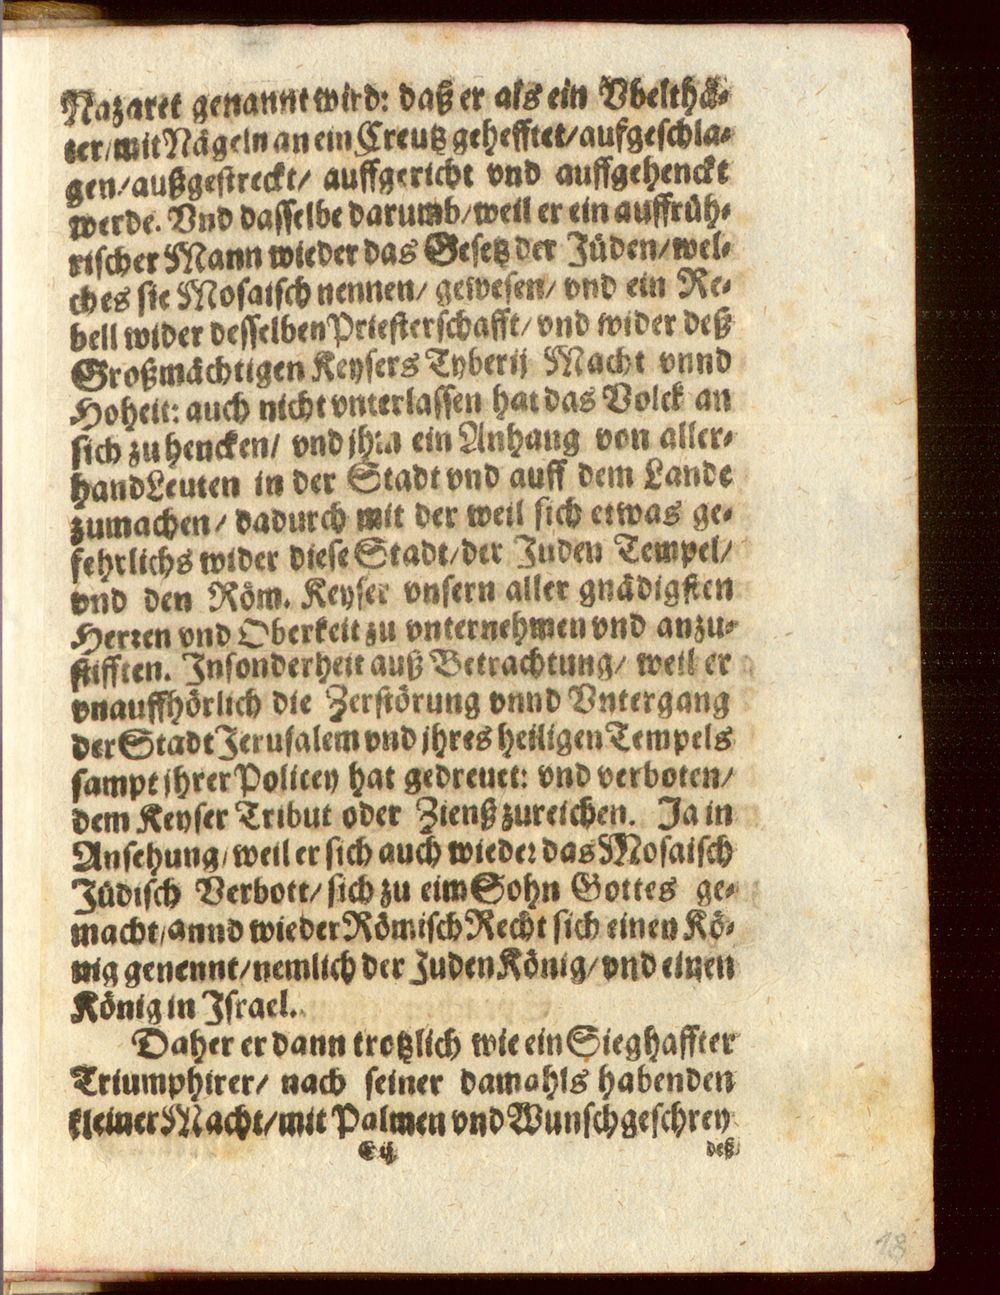 Nazaret genannt wird: daß er als ein Vbelthä-
ter/ mit Nägeln an ein Creutz gehefftet/ aufgeschla-
gen/ außgestreckt/ auffgericht vnd auffgehenckt
werde. Vnd dasselbe darumb/ weil er ein auffrüh-
rischer Mann wieder das Gesetz der Jüden/ wel-
ches sie Mosaisch nennen/ gewesen/ vnd ein Re-
bell wider desselben Priesterschafft/ vnd wider deß
Großmächtigen Keysers Tyberij Macht vnnd
Hoheit: auch nicht vnterlassen hat das Volck an
sich zu hencken/ vnd jhm ein Anhang von aller-
hand Leuten in der Stadt vnd auff dem Lande
zumachen/ dadurch mit der weil sich etwas ge-
fehrlichs wider diese Stadt/ der Juden Tempel/
vnd den Röm. Keyser vnsern aller gnädigsten
Herren vnd Oberkeit zu vnternehmen vnd anzu-
stifften. Insonderheit auß Betrachtung/ weil er
vnauffhörlich die Zerstörung vnnd Vntergang
der Stadt Jerusalem vnd jhres heiligen Tempels
sampt jhrer Policey hat gedreuet: vnd verboten/
dem Keyser Tribut oder Zienß zureichen. Ja in
Ansehung/ weil er sich auch wieder das Mosaisch
Jüdisch Verbott/ sich zu eim Sohn Gottes ge-
macht/ annd wieder Römisch Recht sich einen Kö-
nig genennt/ nemlich der Juden König/ vnd einen
König in Israel.
Daher er dann trotzlich wie ein Sieghaffter
Triumphirer/ nach seiner damahls habenden
kleiner Macht/ mit Palmen vnd Wunschgeschrey
E ij deß
18